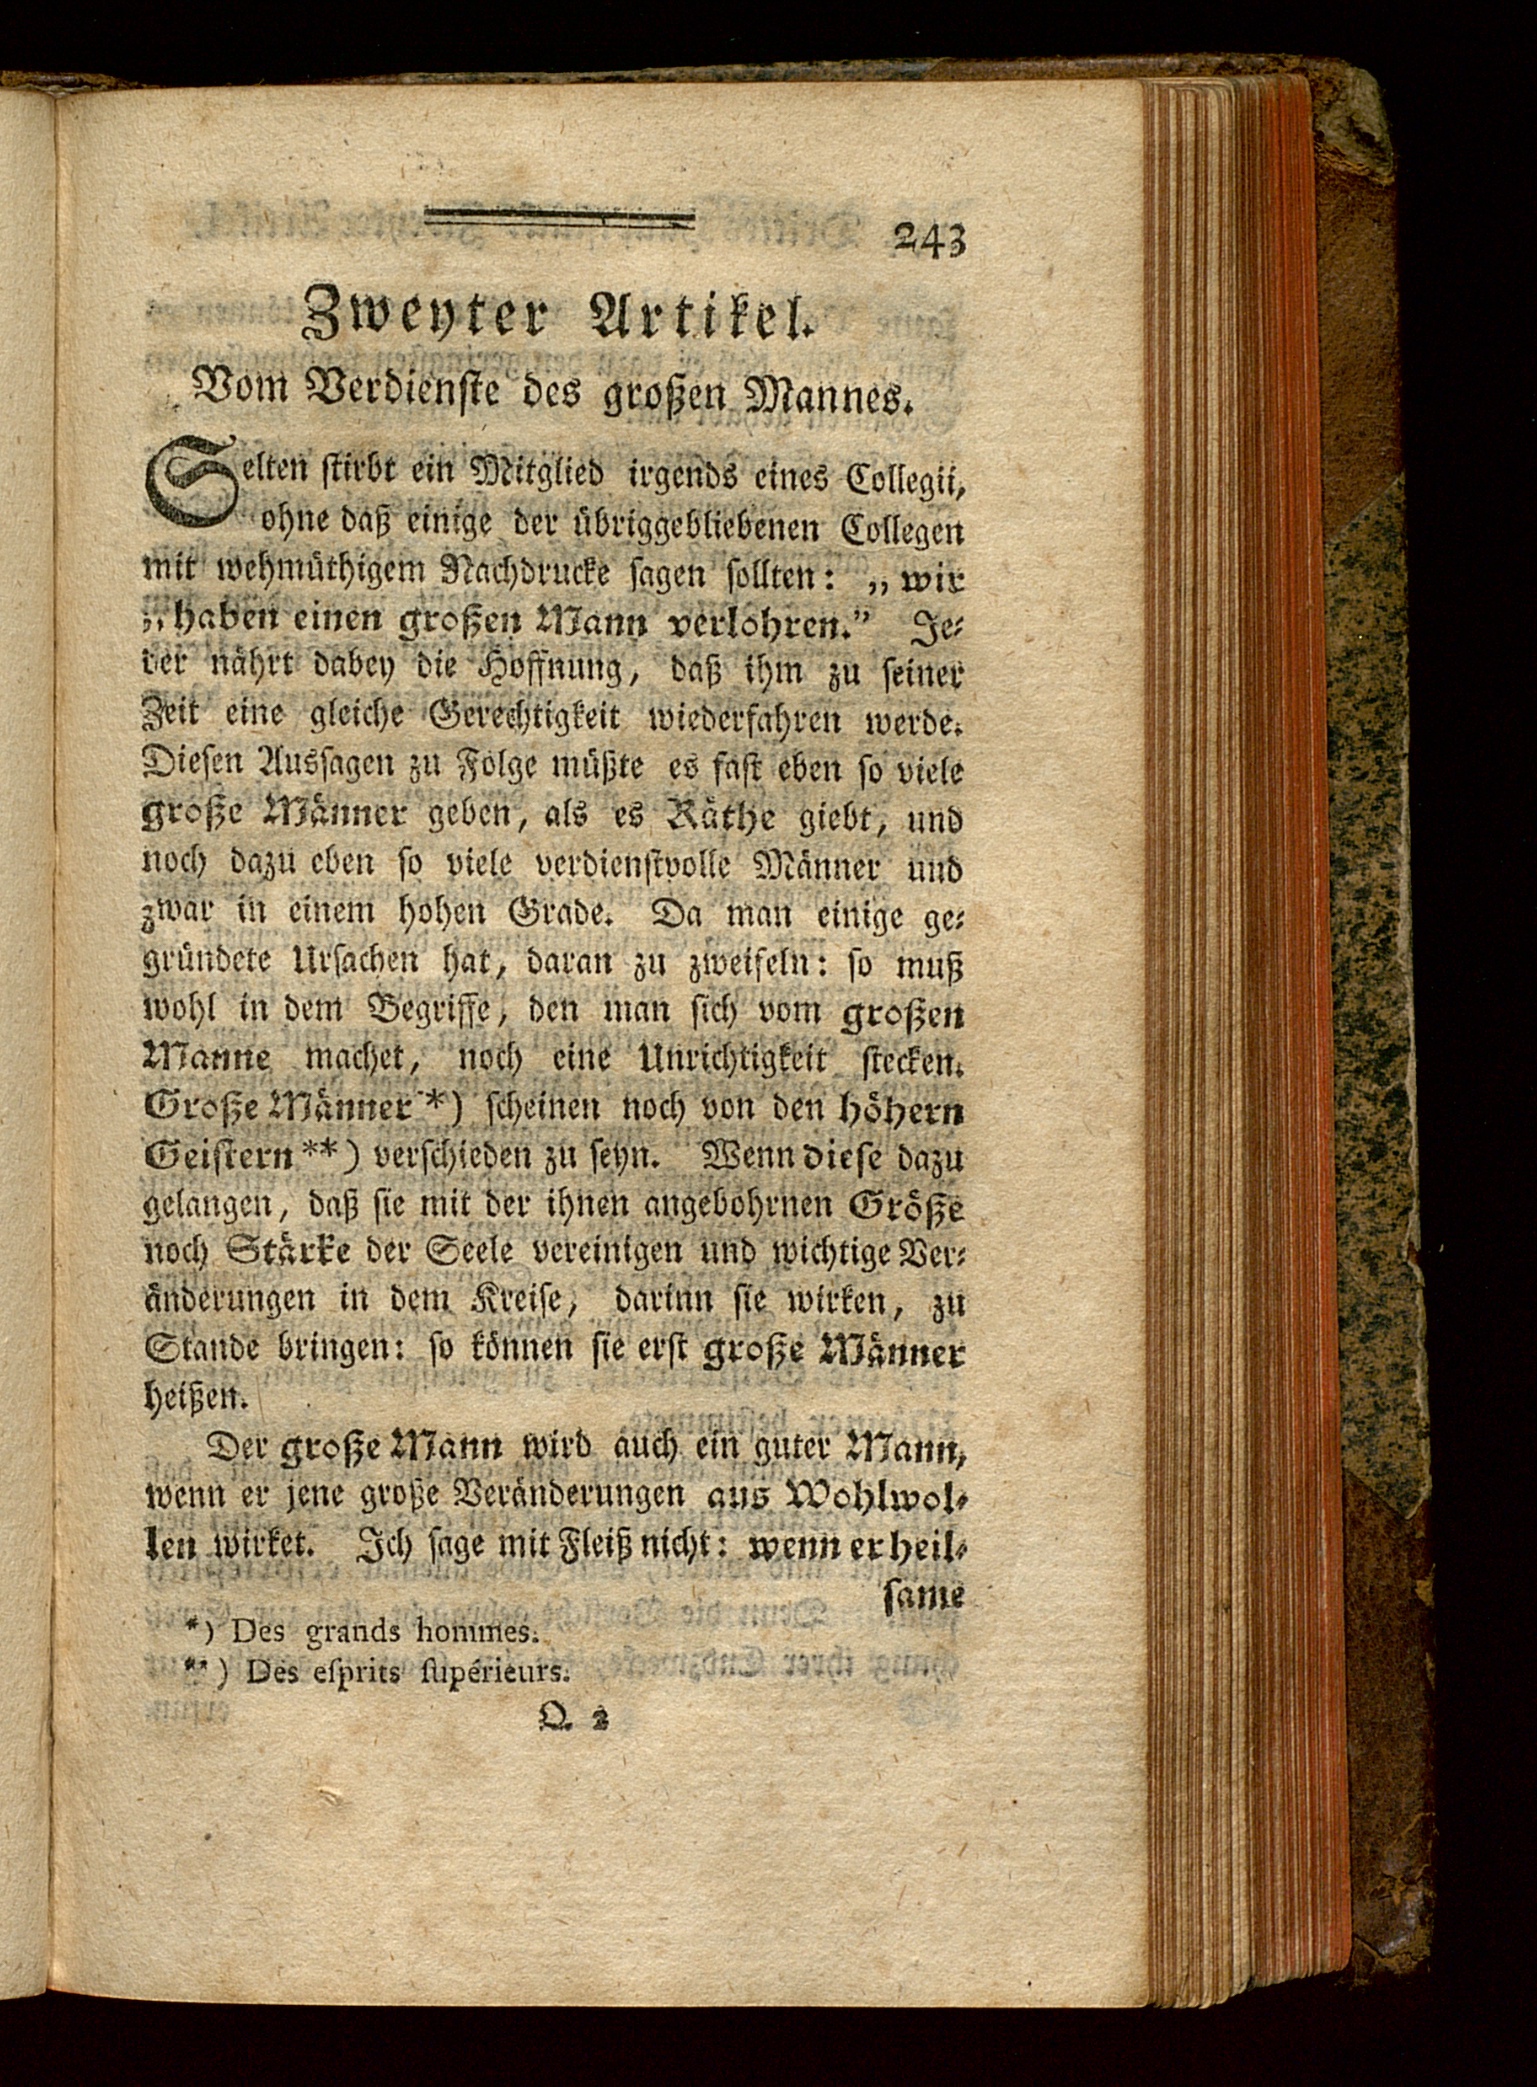 243
Zweyter Artikel.
Vom Verdienste des großen Mannes.
Selten stirbt ein Mitglied irgends eines Collegii,
ohne daß einige der übriggebliebenen Collegen
mit wehmüthigem Nachdrucke sagen sollten: „wir
„haben einen großen Mann verlohren.” Je⸗
der nährt dabey die Hoffnung, daß ihm zu seiner
Zeit eine gleiche Gerechtigkeit wiederfahren werde.
Diesen Aussagen zu Folge müßte es fast eben so viele
große Männer geben, als es Räthe giebt, und
noch dazu eben so viele verdienstvolle Männer und
zwar in einem hohen Grade. Da man einige ge⸗
gründete Ursachen hat, daran zu zweifeln: so muß
wohl in dem Begriffe, den man sich vom großen
Manne machet, noch eine Unrichtigkeit stecken.
Große Männer *) scheinen noch von den höhern
Geistern **) verschieden zu seyn. Wenn diese dazu
gelangen, daß sie mit der ihnen angebohrnen Größe
noch Stärke der Seele vereinigen und wichtige Ver⸗
änderungen in dem Kreise, darinn sie wirken, zu
Stande bringen: so können sie erst große Männer
heißen.
Der große Mann wird auch ein guter Mann,
wenn er jene große Veränderungen aus Wohlwol⸗
len wirket. Ich sage mit Fleiß nicht: wenn er heil⸗
same
*) Des grands hommes.
**) Des eſprits ſupérieurs.
Q 2